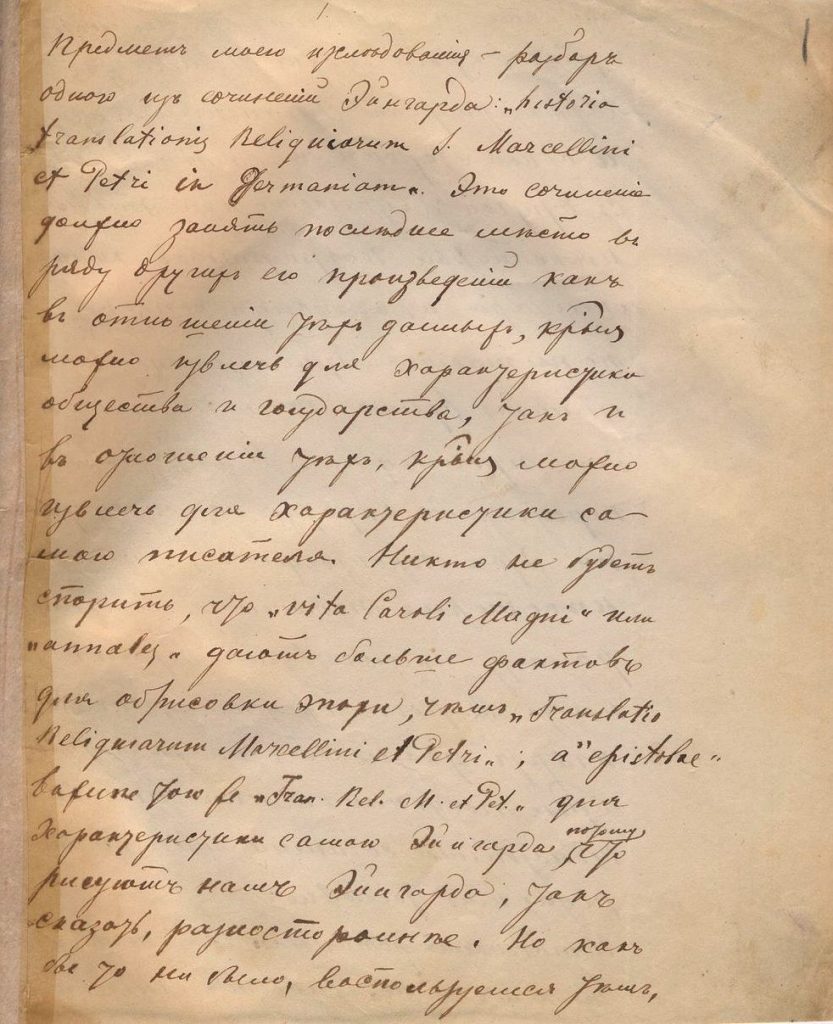 1.
Предметъ моего изслѣдованія – разборъ
одного изъ сочиненій Эйнгарда: „historia
translationis Reliquiarum S. Marcellini
et Petri in Germaniam“. Это сочиненіе
должно занять послѣднее мѣсто въ
ряду другихъ его произведеній какъ
въ отношеніи тѣхъ данныхъ, крыя
можно извлечь для характеристики
общества и государства, такъ и
въ отношеніи тѣхъ, крыя можно
извлечь для характеристики са-
мого писателя. Никто не будетъ
спорить, что „vita Caroli Magni“ или
„annales“ даютъ больше фактовъ
для обрисовки эпохи, чѣмъ „Translatio
Reliquiarum Marcellini et Petri“; а „epistolae“
важнѣе той же „Tran. Rel. M. et Pet.“ для
характеристики самого Эйнгарда, потому что
рисуютъ намъ Эйнгарда, такъ
сказать, разностороннѣе. Но какъ
бы то ни было, воспользуемся тѣмъ,